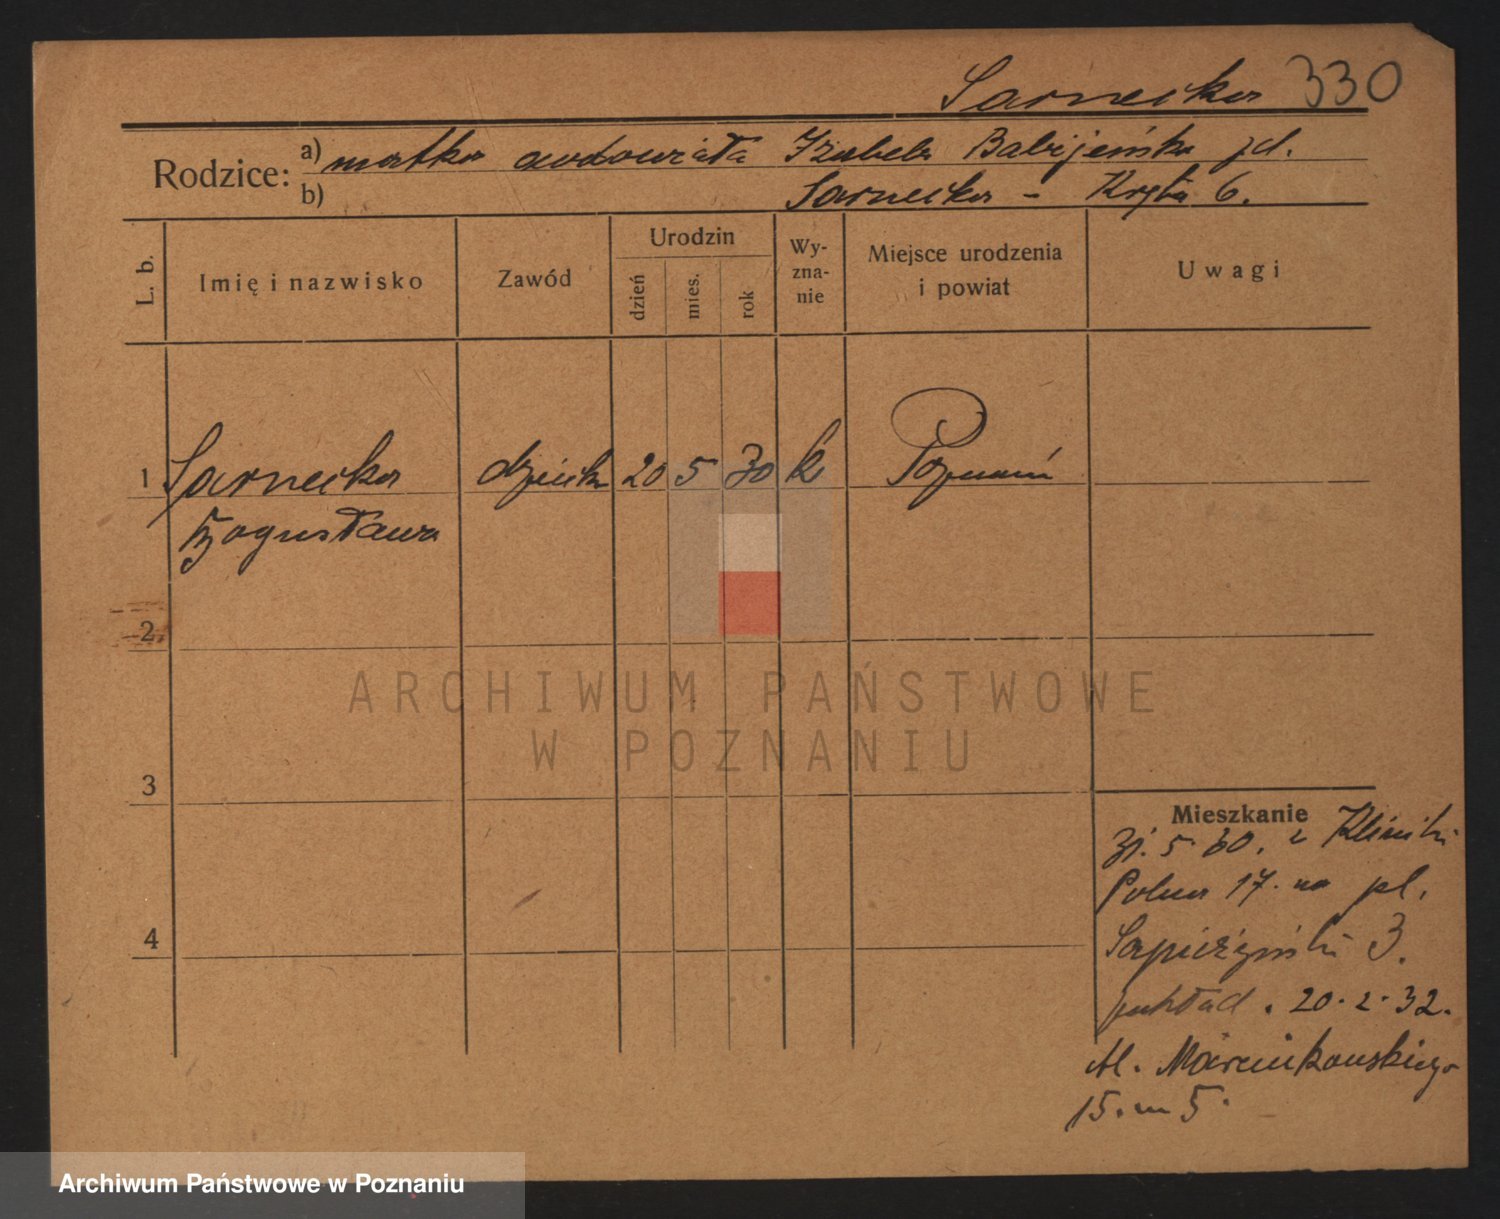 Sarnecka 330
Rodzice:
a) matka owdowiała Izabela Babijeńska zd.
b) Sarnecka - Kręta 6.
L. b.
Imię i nazwisko
Zawód
Urodzin
dzień
mies.
rok
Wy-
zna-
nie
Miejsce urodzenia
i powiat
Uwagi
1 Sarnecka dziecko 20 5 30 k Poznań
Bogusława
2
3
4
Mieszkanie
31. 5. 30. z Kliniki
Polna 17. na pl.
Sapieżyński 3.
zakład. 20.2.32.
Al. Marcinkowskiego
15. m 5.
ARCHIWUM PAŃSTWOWE
W POZNANIU
Archiwum Państwowe w Poznaniu